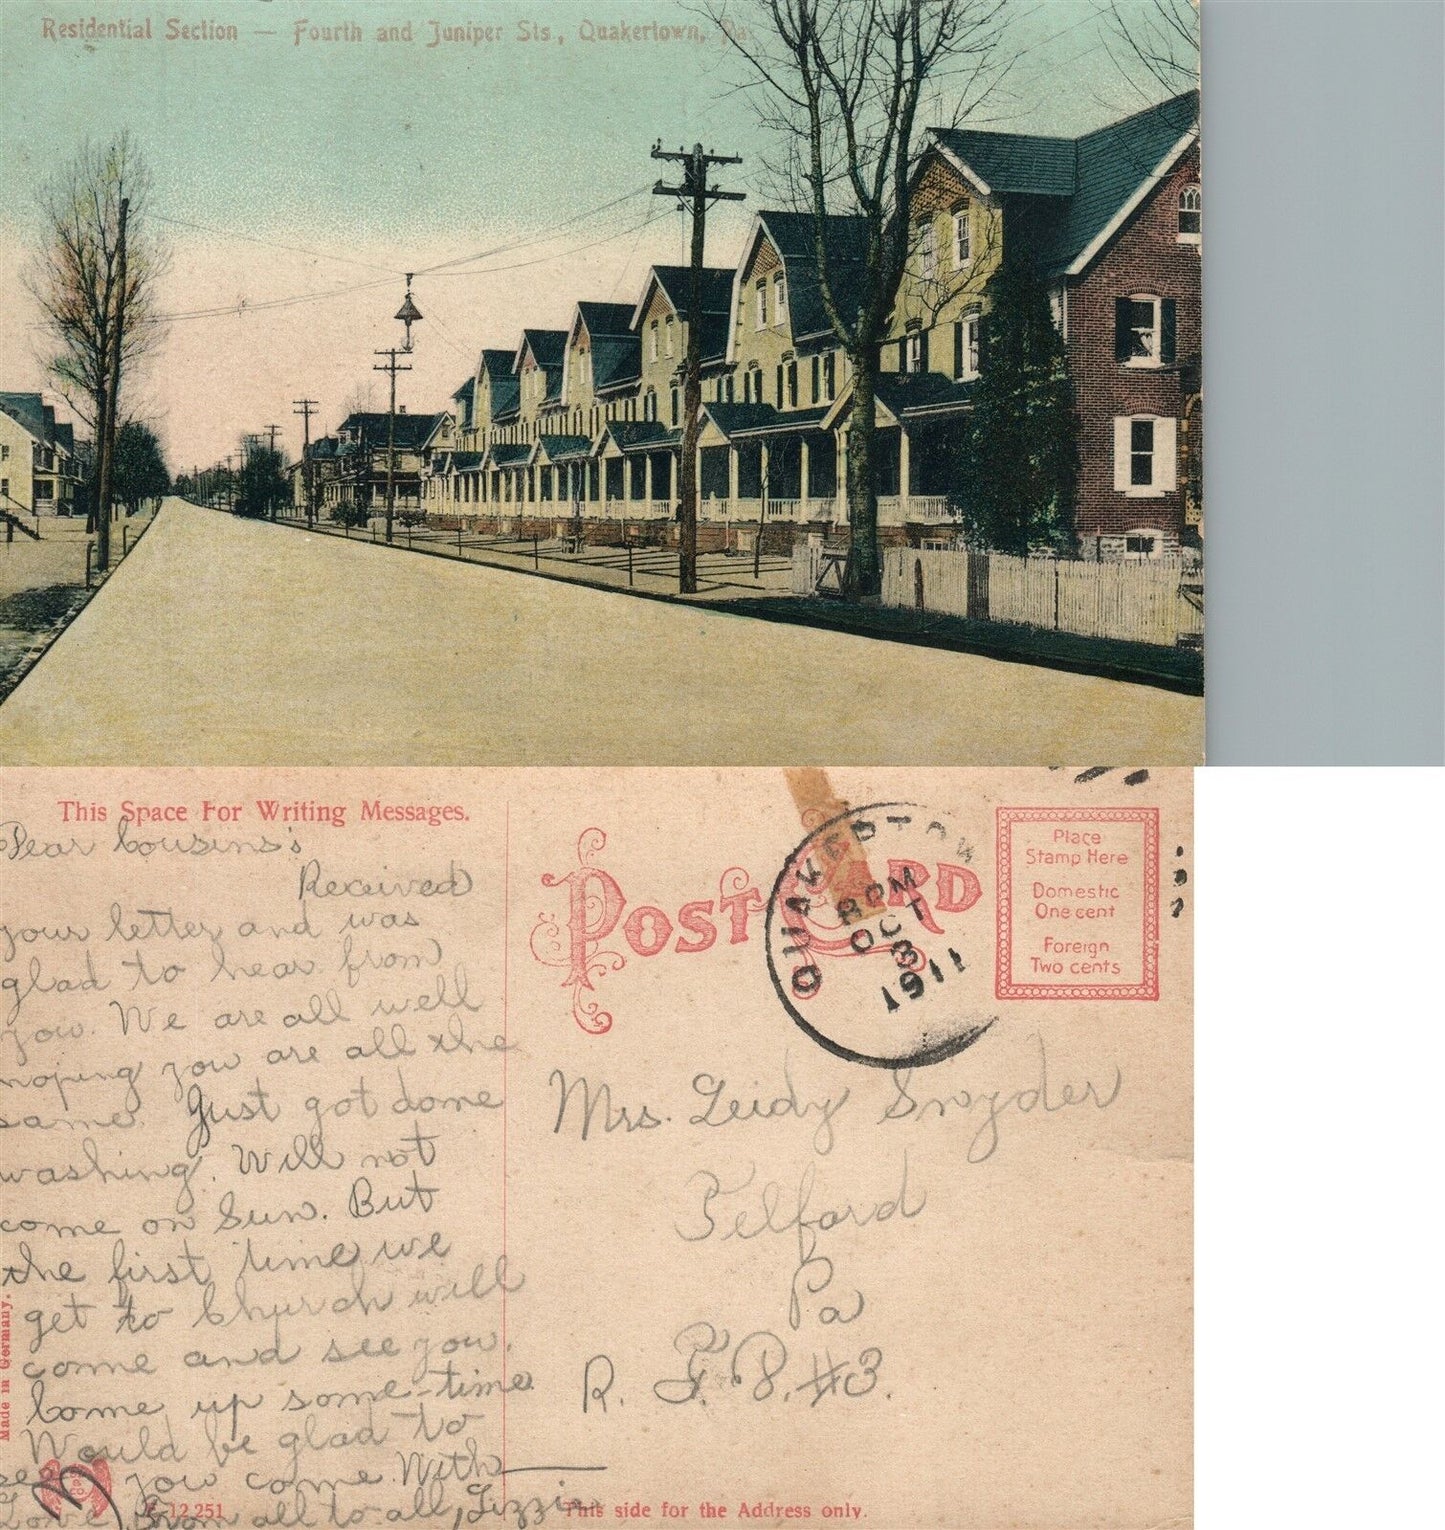 Residential Section — Fourth and Juniper Sts., Quakertown, Pa.
This Space For Writing Messages.
Dear Cousins's
Received
your letter and was
glad to hear from
you. We are all well
hoping you are all the
same. Just got done
washing. Will not
come on Sun. But
the first time we
get to Church will
come and see you.
Come up some-time
Would be glad to
see you come. With
Love from all to all, Lizzie
Made in Germany.
12 251
POST CARD
QUAKERTOW
8 PM
OCT
3
1911
Place
Stamp Here
Domestic
One cent
Foreign
Two cents
Mrs. Leidy Snyder
Telford
Pa
R. F. D. #3.
This side for the Address only.